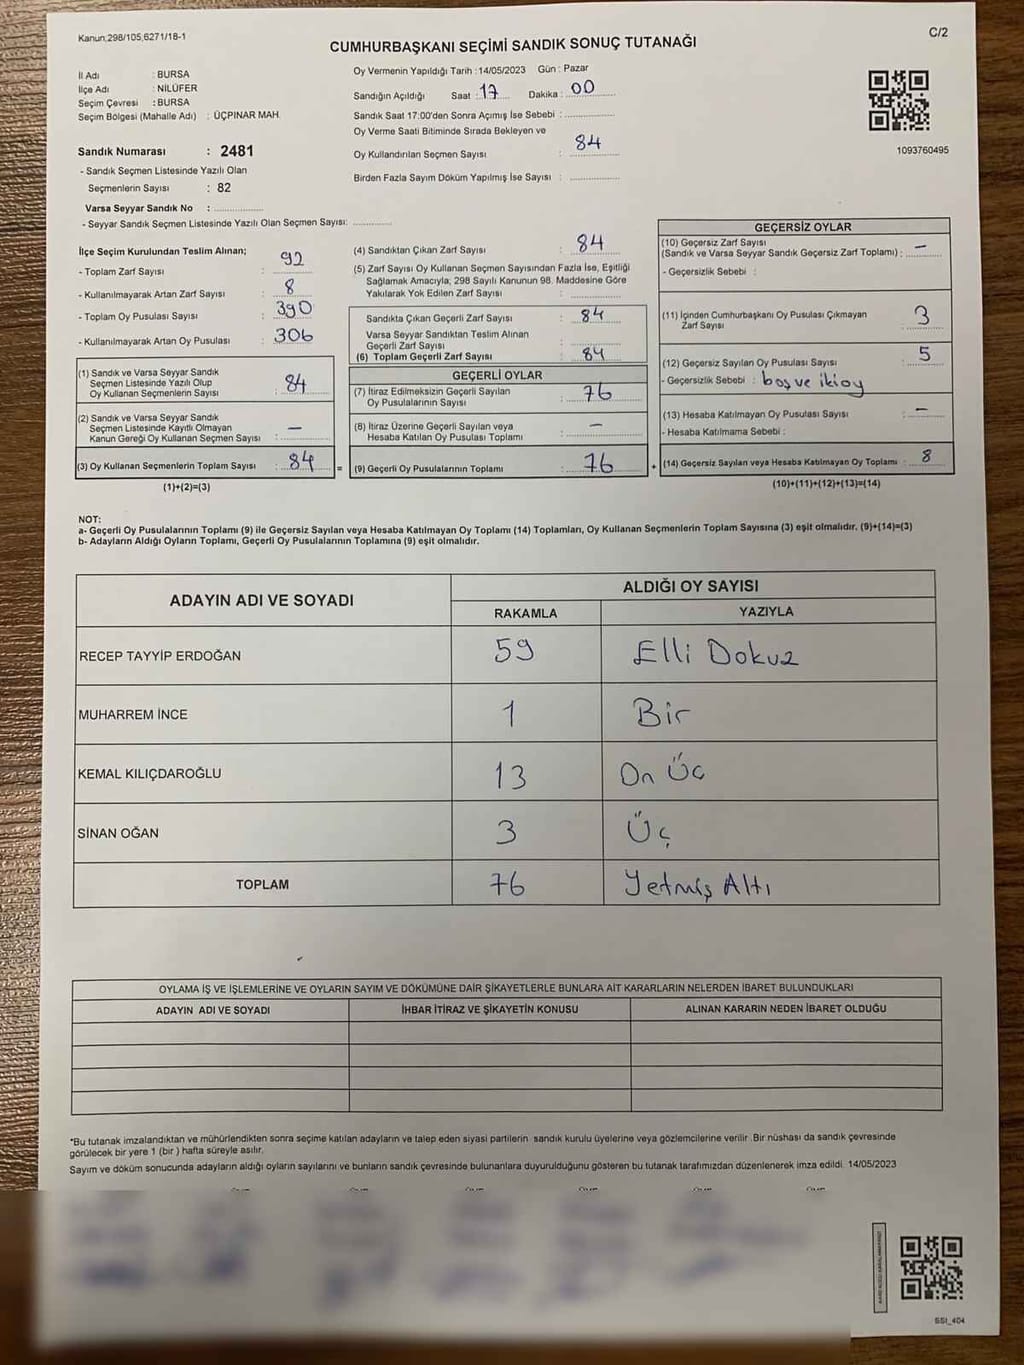 Kanun,298/105,6271/18-1
C/2
CUMHURBAŞKANI SEÇİMİ SANDIK SONUÇ TUTANAĞI
İl Adı : BURSA
İlçe Adı : NİLÜFER
Seçim Çevresi : BURSA
Seçim Bölgesi (Mahalle Adı) : ÜÇPINAR MAH.
Sandık Numarası : 2481
- Sandık Seçmen Listesinde Yazılı Olan
Seçmenlerin Sayısı : 82
Varsa Seyyar Sandık No :
- Seyyar Sandık Seçmen Listesinde Yazılı Olan Seçmen Sayısı:
Oy Vermenin Yapıldığı Tarih : 14/05/2023 Gün : Pazar
Sandığın Açıldığı Saat : 17 Dakika : 00
Sandık Saat 17:00'den Sonra Açımış İse Sebebi :
Oy Verme Saati Bitiminde Sırada Bekleyen ve
Oy Kullandırılan Seçmen Sayısı : 84
Birden Fazla Sayım Döküm Yapılmış İse Sayısı :
1093760495
İlçe Seçim Kurulundan Teslim Alınan;
- Toplam Zarf Sayısı : 92
- Kullanılmayarak Artan Zarf Sayısı : 8
- Toplam Oy Pusulası Sayısı : 390
- Kullanılmayarak Artan Oy Pusulası : 306
(1) Sandık ve Varsa Seyyar Sandık
Seçmen Listesinde Yazılı Olup
Oy Kullanan Seçmenlerin Sayısı : 84
(2) Sandık ve Varsa Seyyar Sandık
Seçmen Listesinde Kayıtlı Olmayan
Kanun Gereği Oy Kullanan Seçmen Sayısı : —
(3) Oy Kullanan Seçmenlerin Toplam Sayısı : 84
(1)+(2)=(3)
(4) Sandıktan Çıkan Zarf Sayısı : 84
(5) Zarf Sayısı Oy Kullanan Seçmen Sayısından Fazla İse, Eşitliği
Sağlamak Amacıyla, 298 Sayılı Kanunun 98. Maddesine Göre
Yakılarak Yok Edilen Zarf Sayısı :
Sandıkta Çıkan Geçerli Zarf Sayısı : 84
Varsa Seyyar Sandıktan Teslim Alınan
Geçerli Zarf Sayısı :
(6) Toplam Geçerli Zarf Sayısı : 84
GEÇERLİ OYLAR
(7) İtiraz Edilmeksizin Geçerli Sayılan
Oy Pusulalarının Sayısı : 76
(8) İtiraz Üzerine Geçerli Sayılan veya
Hesaba Katılan Oy Pusulası Toplamı : —
= (9) Geçerli Oy Pusulalarının Toplamı : 76
GEÇERSİZ OYLAR
(10) Geçersiz Zarf Sayısı
(Sandık ve Varsa Seyyar Sandık Geçersiz Zarf Toplamı) : —
- Geçersizlik Sebebi :
(11) İçinden Cumhurbaşkanı Oy Pusulası Çıkmayan
Zarf Sayısı : 3
(12) Geçersiz Sayılan Oy Pusulası Sayısı : 5
- Geçersizlik Sebebi : boş ve iki oy
(13) Hesaba Katılmayan Oy Pusulası Sayısı : —
- Hesaba Katılmama Sebebi :
+ (14) Geçersiz Sayılan veya Hesaba Katılmayan Oy Toplamı : 8
(10)+(11)+(12)+(13)=(14)
NOT:
a- Geçerli Oy Pusulalarının Toplamı (9) ile Geçersiz Sayılan veya Hesaba Katılmayan Oy Toplamı (14) Toplamları, Oy Kullanan Seçmenlerin Toplam Sayısına (3) eşit olmalıdır. (9)+(14)=(3)
b- Adayların Aldığı Oyların Toplamı, Geçerli Oy Pusulalarının Toplamına (9) eşit olmalıdır.
ADAYIN ADI VE SOYADI
ALDIĞI OY SAYISI
RAKAMLA YAZIYLA
RECEP TAYYİP ERDOĞAN 59 Elli Dokuz
MUHARREM İNCE 1 Bir
KEMAL KILIÇDAROĞLU 13 On Üç
SİNAN OĞAN 3 Üç
TOPLAM 76 Yetmiş Altı
OYLAMA İŞ VE İŞLEMLERİNE VE OYLARIN SAYIM VE DÖKÜMÜNE DAİR ŞİKAYETLERLE BUNLARA AİT KARARLARIN NELERDEN İBARET BULUNDUKLARI
ADAYIN ADI VE SOYADI İHBAR İTİRAZ VE ŞİKAYETİN KONUSU ALINAN KARARIN NEDEN İBARET OLDUĞU
*Bu tutanak imzalandıktan ve mühürlendikten sonra seçime katılan adayların ve talep eden siyasi partilerin sandık kurulu üyelerine veya gözlemcilerine verilir. Bir nüshası da sandık çevresinde
görülecek bir yere 1 (bir) hafta süreyle asılır.
Sayım ve döküm sonucunda adayların aldığı oyların sayılarını ve bunların sandık çevresinde bulunanlara duyurulduğunu gösteren bu tutanak tarafımızdan düzenlenerek imza edildi. 14/05/2023
SSI_404